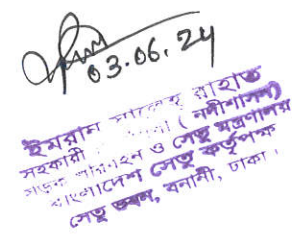 03.06.24
ইমরান সালেহ রাহাত
সহকারী (নদীশাসন)
সড়ক পরিবহন ও সেতু মন্ত্রণালয়
বাংলাদেশ সেতু কর্তৃপক্ষ
সেতু ভবন, বনানী, ঢাকা।